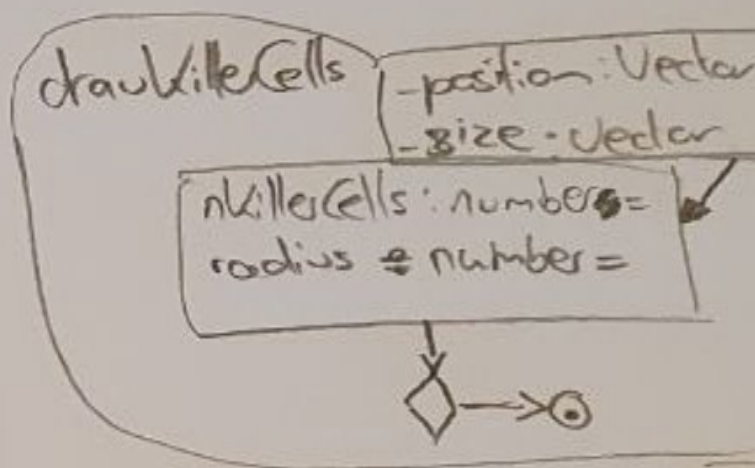 drawKillerCells
-position: Vector
-size: Vector
nKillerCells: number =
radius : number =